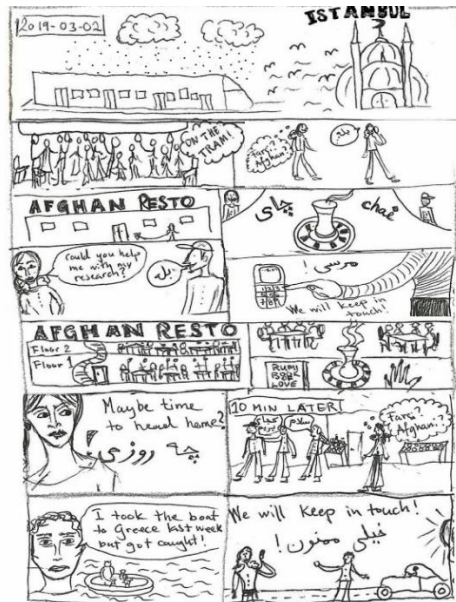 2019-03-02
ISTANBUL
ON THE
TRAM!
Farsi?
Afghan?
بله
AFGHAN RESTO
چای
chai
Could you help
me with my
research?
بله
مرسی!
We will keep in
touch!
AFGHAN RESTO
Floor 2
Floor 1
RUMI
LOVE
Maybe time
to head home?
چه روزی!
10 MIN LATER!
سلام
Farsi?
Afghan?
I took the boat
to Greece last week
but got caught!
We will keep in touch!
خیلی ممنون!